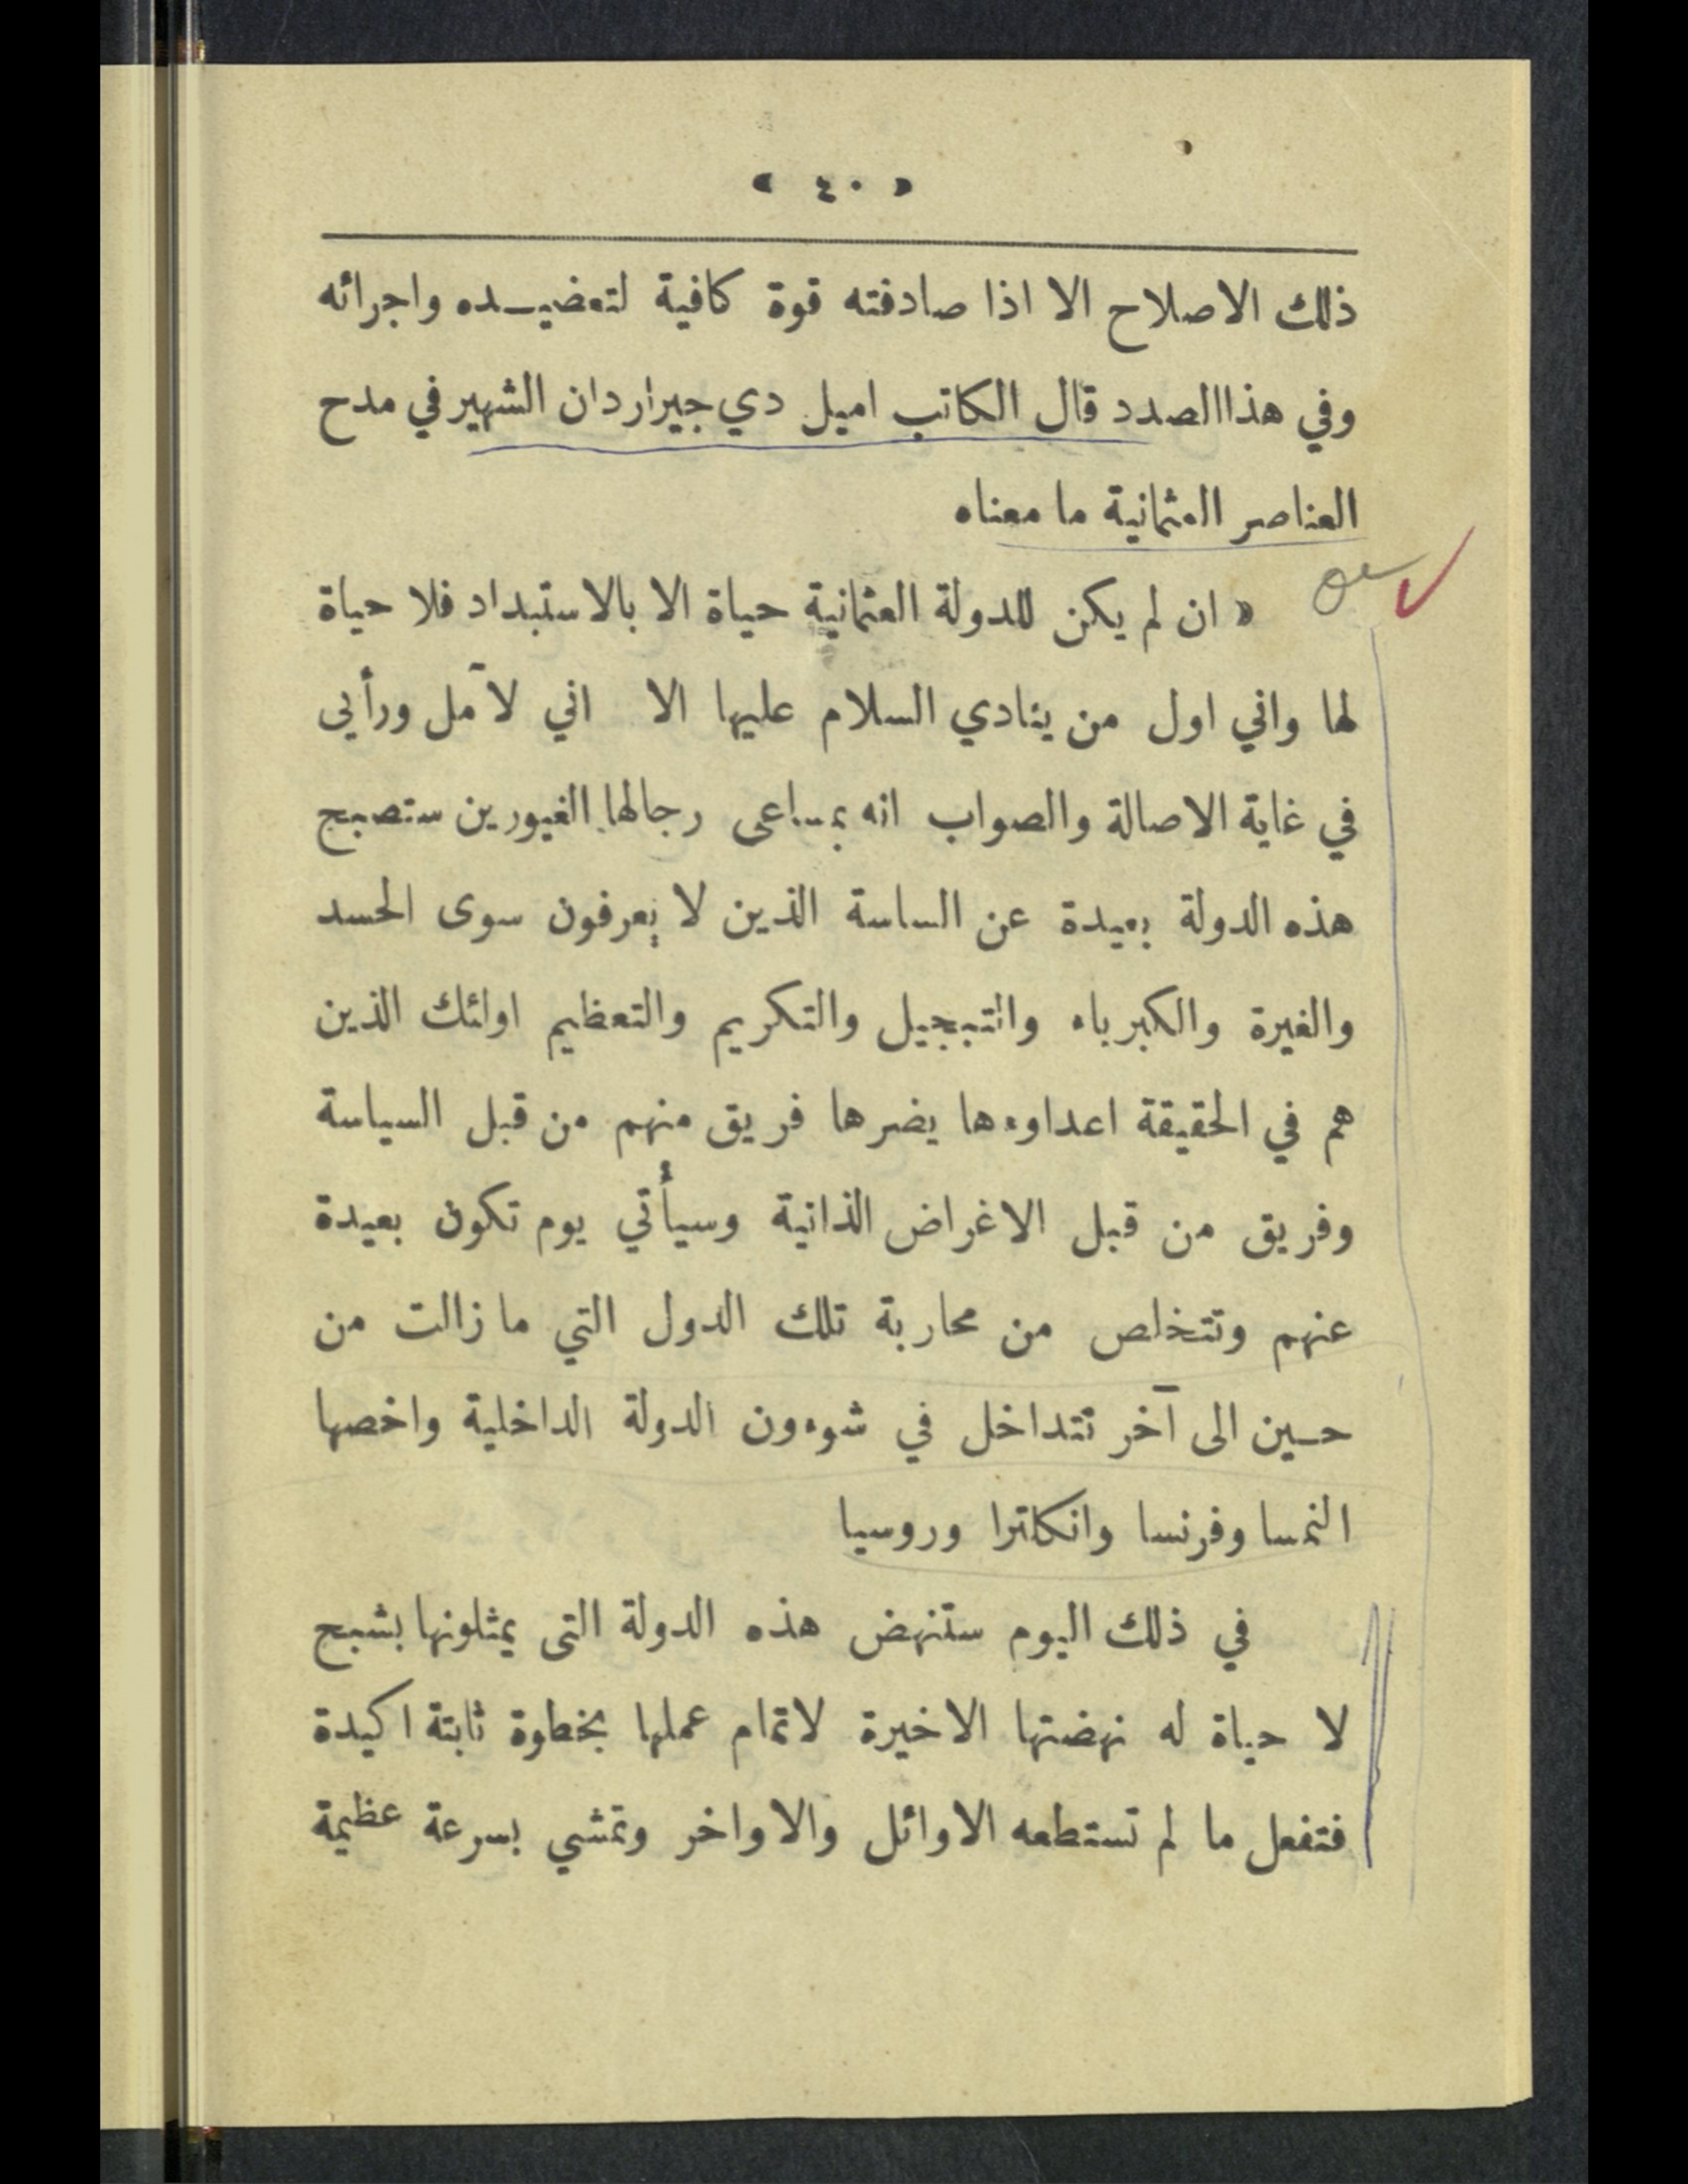 « ٤٠ »
ذلك الاصلاح الا اذا صادفته قوة كافية لتعضيـده واجرائه
وفي هذا الصدد قال الكاتب اميل دي جيراردان الشهير في مدح
العناصر العثمانية ما معناه
« ان لم يكن للدولة العثمانية حياة الا بالاستبداد فلا حياة
لها واني اول من ينادي السلام عليها الا اني لآمل ورأيى
في غاية الاصالة والصواب انه بمساعى رجالها الغيورين ستصبح
هذه الدولة بعيدة عن الساسة الذين لا يعرفون سوى الحسد
والغيرة والكبرياء والتبجيل والتكريم والتعظيم اولئك الذين
هم في الحقيقة اعداوءها يضرها فريق منهم من قبل السياسة
وفريق من قبل الاغراض الذاتية وسيأتي يوم تكون بعيدة
عنهم وتتخلص من محاربة تلك الدول التي ما زالت من
حـين الى آخر تتداخل في شوءون الدولة الداخلية واخصها
النمسا وفرنسا وانكلترا وروسيا
في ذلك اليوم ستنهض هذه الدولة التى يمثلونها بشبح
لا حياة له نهضتها الاخيرة لاتمام عملها بخطوة ثابتة اكيدة
فتفعل ما لم تستطعه الاوائل والاواخر وتمشي بسرعة عظيمة